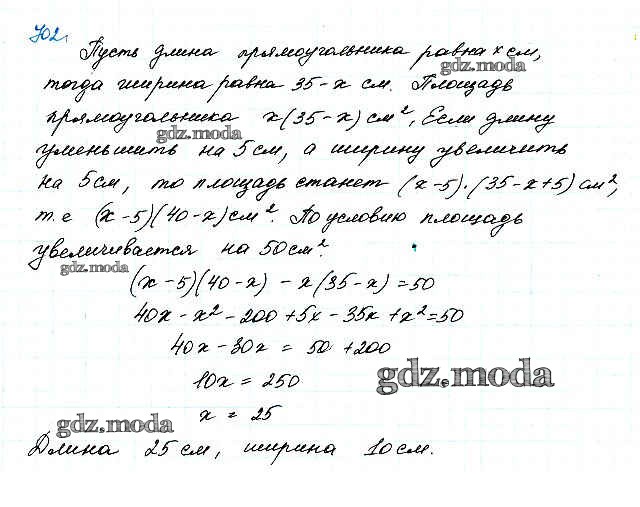 702.
Пусть длина прямоугольника равна x см,
gdz.moda
тогда ширина равна 35-x см. Площадь
прямоугольника x(35-x) см², Если длину
gdz.moda
уменьшить на 5 см, а ширину увеличить
на 5 см, то площадь станет (x-5)·(35-x+5) см²,
т.е (x-5)(40-x) см². По условию площадь
увеличивается на 50 см².
gdz.moda
(x-5)(40-x) - x(35-x) = 50
40x - x² - 200 + 5x - 35x + x² = 50
40x - 30x = 50 + 200
10x = 250
gdz.moda
x = 25
gdz.moda
Длина 25 см, ширина 10 см.